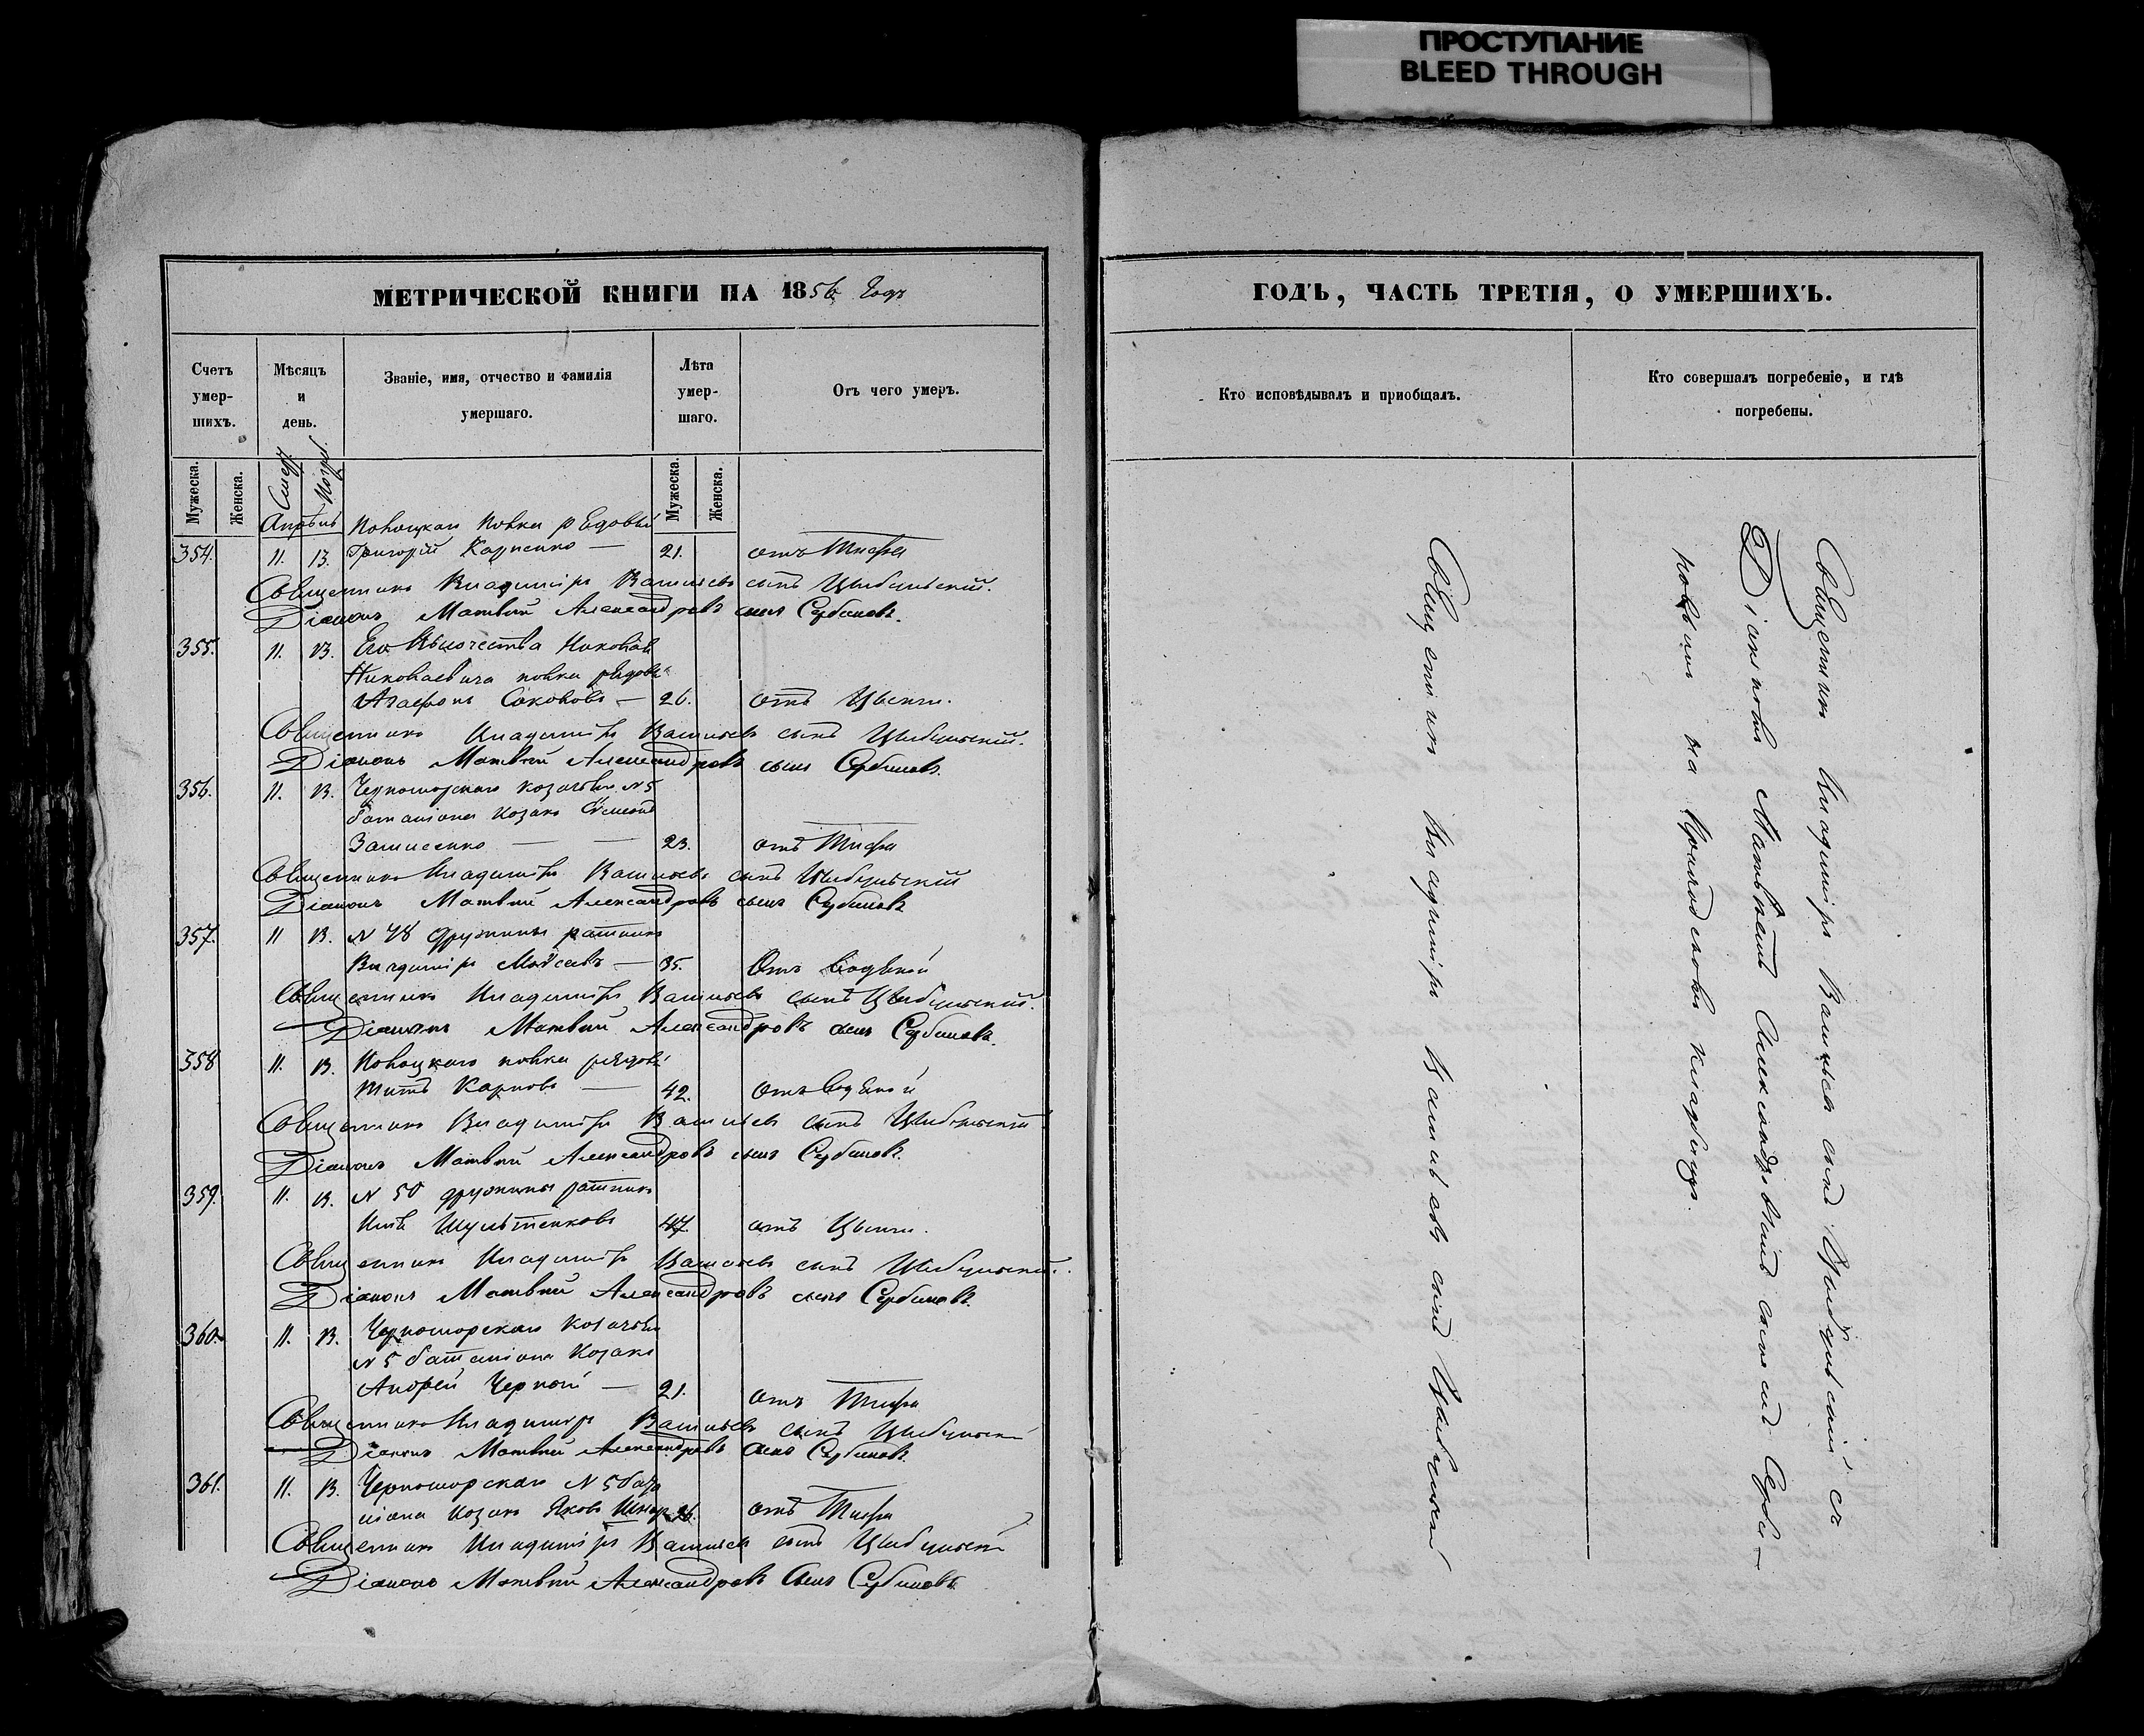 ПРОСТУПАНИЕ
BLEED THROUGH
МЕТРИЧЕСКОЙ КНИГИ НА 1856 Годъ
Счетъ умер-шихъ.
Мѣсяцъ и день.
Званіе, имя, отчество и фамилія умершаго.
Лѣта умер-шаго.
Отъ чего умеръ.
Мужеска.
Женска.
Смерт.
Погр.
Мужеска.
Женска.
Апрѣль Полоцкаго полка рядовый
354. 11. 13. Григорій Карпенко — 21. отъ Тифа
Священникъ Владиміръ Васильевъ сынъ Цыбульскій.
Діаконъ Матвѣй Александровъ сынъ Сербиновъ.
355. 11. 13. Его Высочества Николая
Николаевича полка рядов.
Агафонъ Соколовъ — 26. отъ Цынги.
Священникъ Владиміръ Васильевъ сынъ Цыбульскій.
Діаконъ Матвѣй Александровъ сынъ Сербиновъ.
356. 11. 13. Черноморскаго козачьяго №5
баталіона козакъ Симеонъ
— — 23. отъ Тифа
Священникъ Владиміръ Васильевъ сынъ Цыбульскій
Діаконъ Матвѣй Александровъ сынъ Сербиновъ
357. 11 13. № 48 дружины ратникъ
Владиміръ Моѵсеевъ — 35. Отъ водяной
Священникъ Владиміръ Васильевъ сынъ Цыбульскій.
Діаконъ Матвѣй Александровъ сынъ Сербиновъ.
358 11. 13. Полоцкаго полка рядов.
Титъ Карповъ — 42. Отъ водяной
Священникъ Владиміръ Васильевъ сынъ Цыбульскій
Діаконъ Матвѣй Александровъ сынъ Сербиновъ.
359. 11. 13. № 50 дружины ратникъ
47. отъ Цынги.
Священникъ Владиміръ Васильевъ сынъ Цыбульскій.
Діаконъ Матвѣй Александровъ сынъ Сербиновъ.
360. 11. 13. Черноморскаго козачьяго
№ 5 баталіона Козакъ
Андрей Черной — 21. отъ Тифа
Священникъ Владиміръ Васильевъ сынъ Цыбульскій
Діаконъ Матвѣй Александровъ сынъ Сербиновъ.
361. 11. 13. Черноморскаго № 5 бата
ліона козакъ Яковъ 26. отъ Тифа
Священникъ Владиміръ Васильевъ сынъ Цыбульскій
Діаконъ Матвѣй Александровъ Сынъ Сербиновъ
ГОДЪ, ЧАСТЬ ТРЕТІЯ, О УМЕРШИХЪ.
Кто исповѣдывалъ и приобщалъ.
Кто совершалъ погребеніе, и гдѣ
погребены.
Священникъ Владиміръ Васильевъ сынъ Цыбульскій
Священникъ Владиміръ Васильевъ сынъ Цыбульскій съ
Діакономъ Матвѣемъ Александровымъ сыномъ Серби-
новымъ на Городскомъ кладбищѣ.